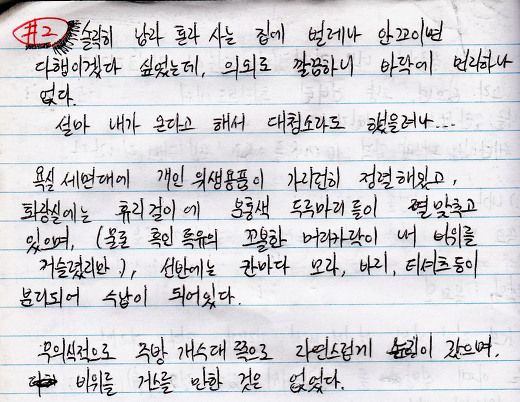 #2 솔직히 남자 혼자 사는 집에 벌레나 안꼬이면
다행이겠다 싶었는데, 의외로 깔끔하니 바닥에 먼지하나
없다.
설마 내가 온다고 해서 대청소라도 했을려나...
욕실 세면대에 개인 위생용품이 가지런히 정렬해있고,
화장실에는 휴지걸이에 보통색 두루마리들이 열맞추고
있으며, (물론 흑인 특유의 꼬불한 머리카락이 내 비위를
거슬렸지만), 선반에는 칸마다 모자, 바지, 티셔츠등이
분리되어 수납이 되어있다.
무의식적으로 주방 개수대 쪽으로 자연스럽게 눈길이 갔으며,
비위를 거스를 만한 것은 없었다.